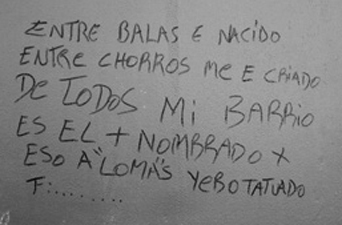 ENTRE BALAS E NACIDO
ENTRE CHORROS ME E CRIADO
DE TODOS MI BARRIO
ES EL + NOMBRADO X
ESO A "LOMAS" YEBO TATUADO
F:........